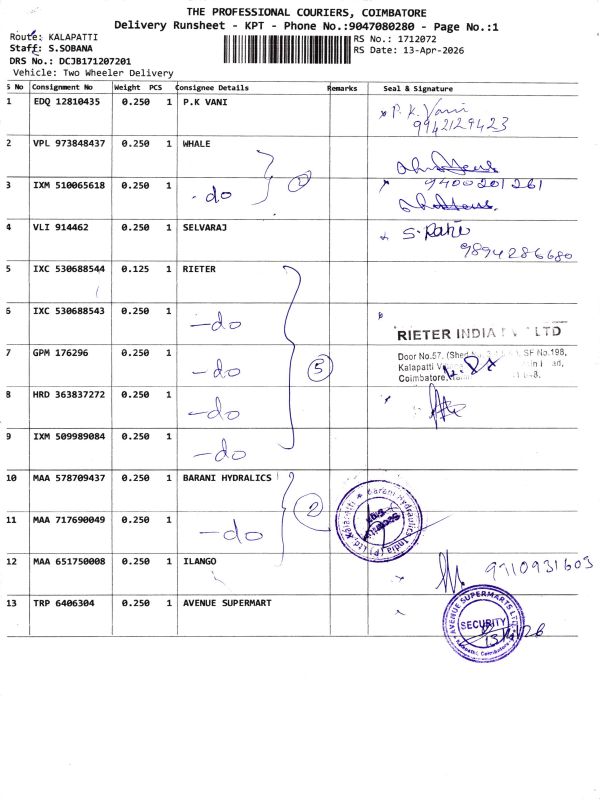 THE PROFESSIONAL COURIERS, COIMBATORE
Delivery Runsheet - KPT - Phone No.:9047080280 - Page No.:1
Route: KALAPATTI
Staff: S.SOBANA
DRS No.: DCJB171207201
Vehicle: Two Wheeler Delivery
RS No.: 1712072
RS Date: 13-Apr-2026
S No Consignment No Weight PCS Consignee Details Remarks Seal & Signature
1 EDQ 12810435 0.250 1 P.K VANI P. K. Vani
9942129423
2 VPL 973848437 0.250 1 WHALE
3 IXM 510065618 0.250 1 -do 9400201261
4 VLI 914462 0.250 1 SELVARAJ
9894286680
5 IXC 530688544 0.125 1 RIETER
6 IXC 530688543 0.250 1 -do
RIETER INDIA LTD
7 GPM 176296 0.250 1 -do 5
Door No.57, SF No.198,
Kalapatti
Coimbatore
8 HRD 363837272 0.250 1 -do
9 IXM 509989084 0.250 1 -do
10 MAA 578709437 0.250 1 BARANI HYDRALICS 2
11 MAA 717690049 0.250 1 -do
Barani Hydraulics India (P) Ltd. Kalapatti
12 MAA 651750008 0.250 1 ILANGO
13 TRP 6406304 0.250 1 AVENUE SUPERMART
AVENUE SUPERMARTS LTD
SECURITY
Coimbatore